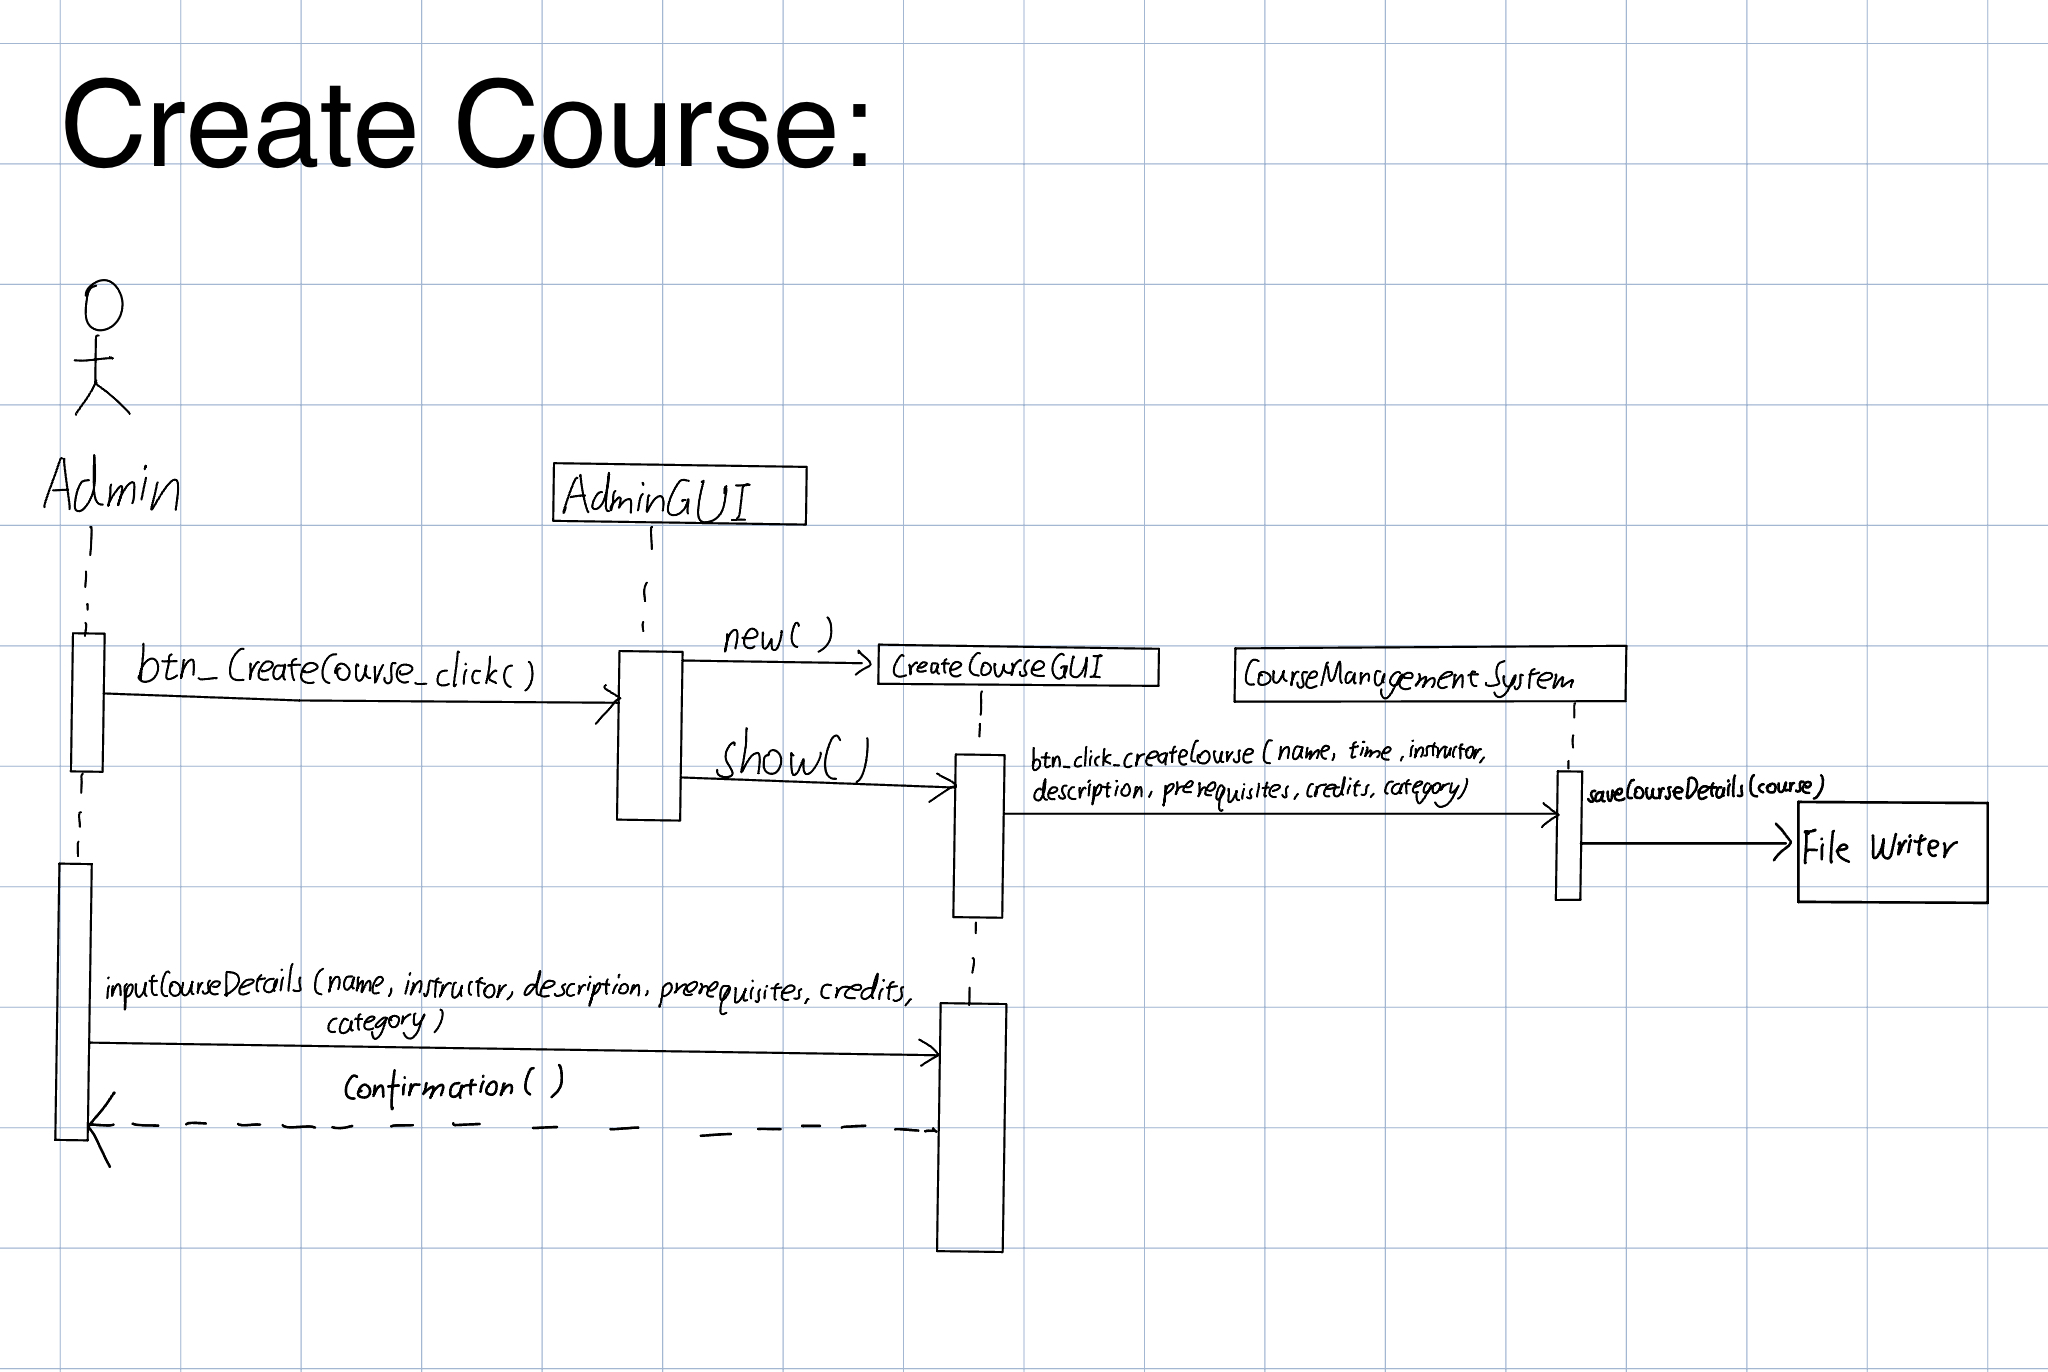 Create Course:
Admin
AdminGUI
new( )
btn_CreateCourse_click()
CreateCourseGUI
CourseManagementSystem
show()
btn_click_createCourse (name, time, instructor,
description, prerequisites, credits, category)
saveCourseDetails(course)
File Writer
inputCourseDetails (name, instructor, description, prerequisites, credits,
category)
Confirmation ( )